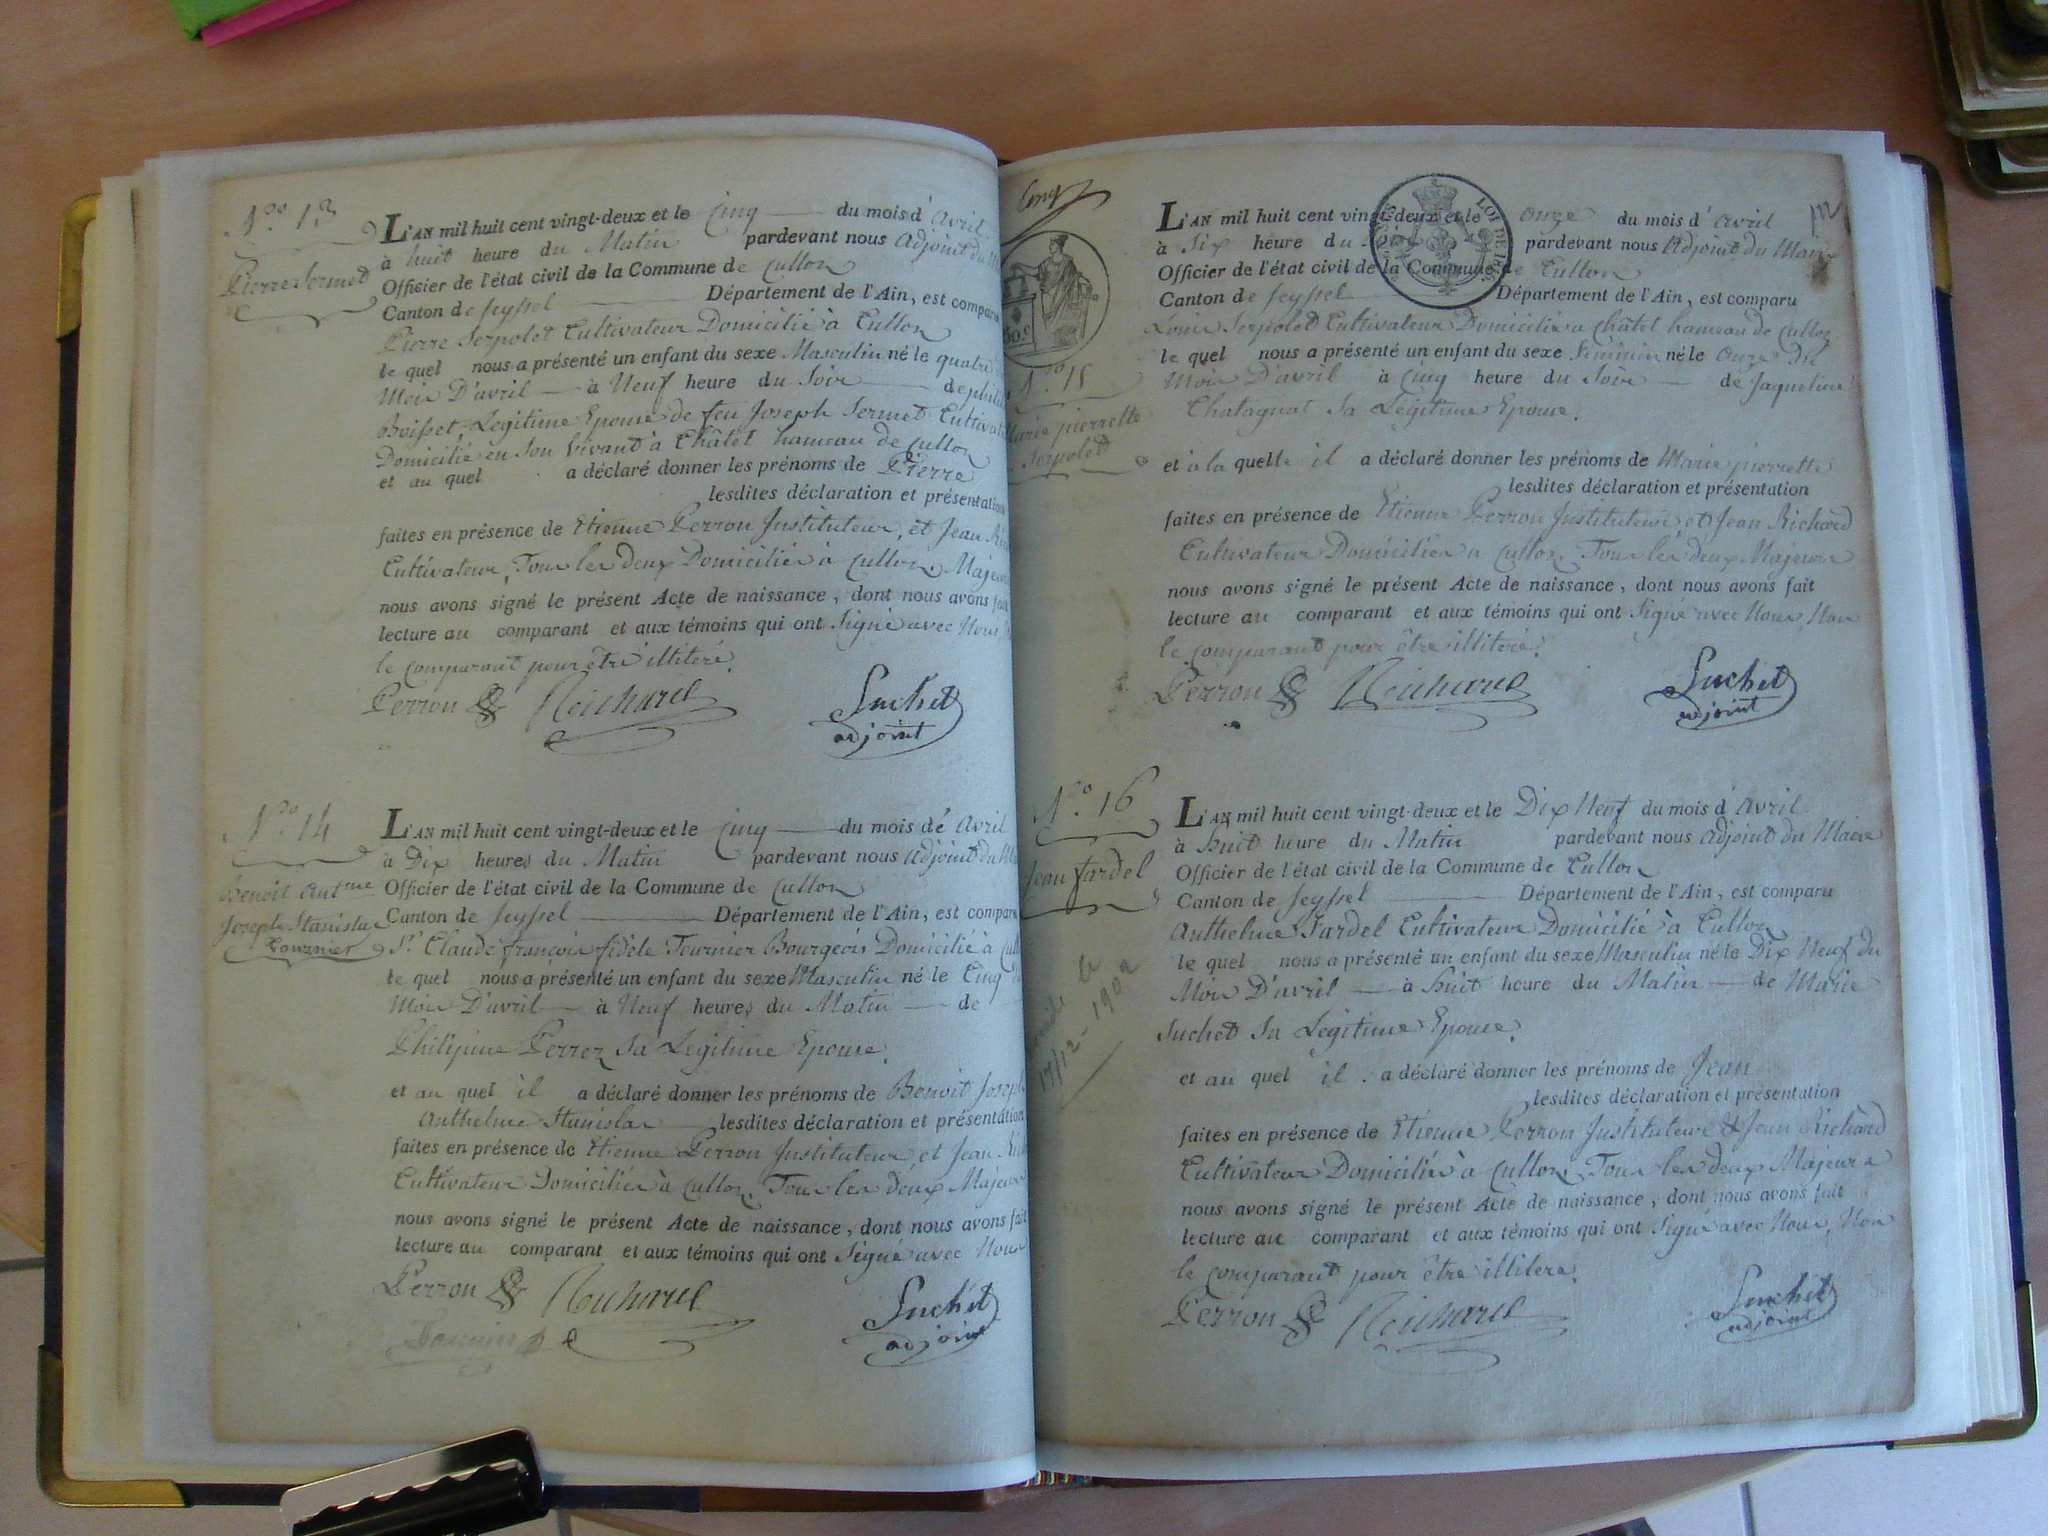 N.º 13
Pierre Sermet
L'AN mil huit cent vingt-deux et le Cinq du mois d'avril
à huit heure du Matin pardevant nous Adjoint du
Officier de l'état civil de la Commune de Culloz
Canton de Seyssel Département de l'Ain, est comparu
Pierre Serpolet Cultivateur Domicilié à Culloz
le quel nous a présenté un enfant du sexe Masculin né le quatre
Mois D'avril à Neuf heure du Soir de
Boisset, Légitime Epouse de feu Joseph Sermet Cultivateur
Domicilié en Son Vivant à Châtel hameau de Culloz
et au quel a déclaré donner les prénoms de Pierre
lesdites déclaration et présentation
faites en présence de Etienne Perron Instituteur, et Jean
Cultivateur, Tous les deux Domiciliés à Culloz, Majeurs
nous avons signé le présent Acte de naissance, dont nous avons fait
lecture au comparant et aux témoins qui ont Signé avec Nous,
le comparant pour être illitéré.
Perron Reichard Suchet
adjoint
N.º 14
Benoit Ant.me
Joseph Stanislas
Fournier
L'AN mil huit cent vingt-deux et le Cinq du mois de avril
à Dix heures du Matin pardevant nous Adjoint du
Officier de l'état civil de la Commune de Culloz
Canton de Seyssel Département de l'Ain, est comparu
S.r Claude françois fidèle Fournier Bourgeois Domicilié à
le quel nous a présenté un enfant du sexe Masculin né le Cinq
Mois D'avril à Neuf heures du Matin de
Philipine Perrez Sa Légitime Epouse.
et au quel il a déclaré donner les prénoms de Benoit Joseph
Anthelme Stanislas lesdites déclaration et présentation
faites en présence de Etienne Perron Instituteur et Jean
Cultivateur Domiciliés à Culloz, Tous les deux Majeurs
nous avons signé le présent Acte de naissance, dont nous avons fait
lecture au comparant et aux témoins qui ont Signé avec Nous
Perron Reichard Suchet
Fournier adjoint
Cinq
LOI DE 18
50 c
N.º 15
Marie pierrette
Serpolet
L'AN mil huit cent vingt-deux et le onze du mois d'avril
à Six heure du Soir pardevant nous Adjoint du Maire
Officier de l'état civil de la Commune de Culloz
Canton de Seyssel Département de l'Ain, est comparu
Louis Serpolet Cultivateur Domicilié à Châtel hameau de Culloz
le quel nous a présenté un enfant du sexe Féminin né le Onze du
Mois D'avril à Cinq heure du Soir de Jaqueline
Chatagnat Sa Légitime Epouse.
et à la quelle il a déclaré donner les prénoms de Marie pierrette
lesdites déclaration et présentation
faites en présence de Etienne Perron Instituteur et Jean Richard
Cultivateur Domiciliés à Culloz, Tous les deux Majeurs
nous avons signé le présent Acte de naissance, dont nous avons fait
lecture au comparant et aux témoins qui ont Signé avec Nous, Non
le comparant pour être illitéré.
Perron Reichard Suchet
adjoint
N.º 16
Jean fardel
17/12-1902
L'AN mil huit cent vingt-deux et le Dix Neuf du mois d'avril
à huit heure du Matin pardevant nous Adjoint du Maire
Officier de l'état civil de la Commune de Culloz
Canton de Seyssel Département de l'Ain, est comparu
Anthelme Fardel Cultivateur Domicilié à Culloz
le quel nous a présenté un enfant du sexe Masculin né le Dix Neuf du
Mois D'avril à huit heure du Matin de Marie
Suchet Sa Légitime Epouse.
et au quel il a déclaré donner les prénoms de Jean
lesdites déclaration et présentation
faites en présence de Etienne Perron Instituteur & Jean Richard
Cultivateur Domiciliés à Culloz, Tous les deux Majeurs
nous avons signé le présent Acte de naissance, dont nous avons fait
lecture au comparant et aux témoins qui ont Signé avec Nous, Non
le comparant pour être illitéré.
Perron Reichard Suchet
adjoint